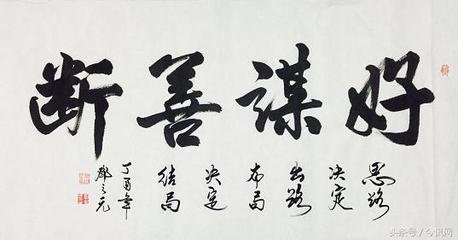 好谋善断
思路
决定
出路
布局
决定
结局
丁酉年
之元
头条号